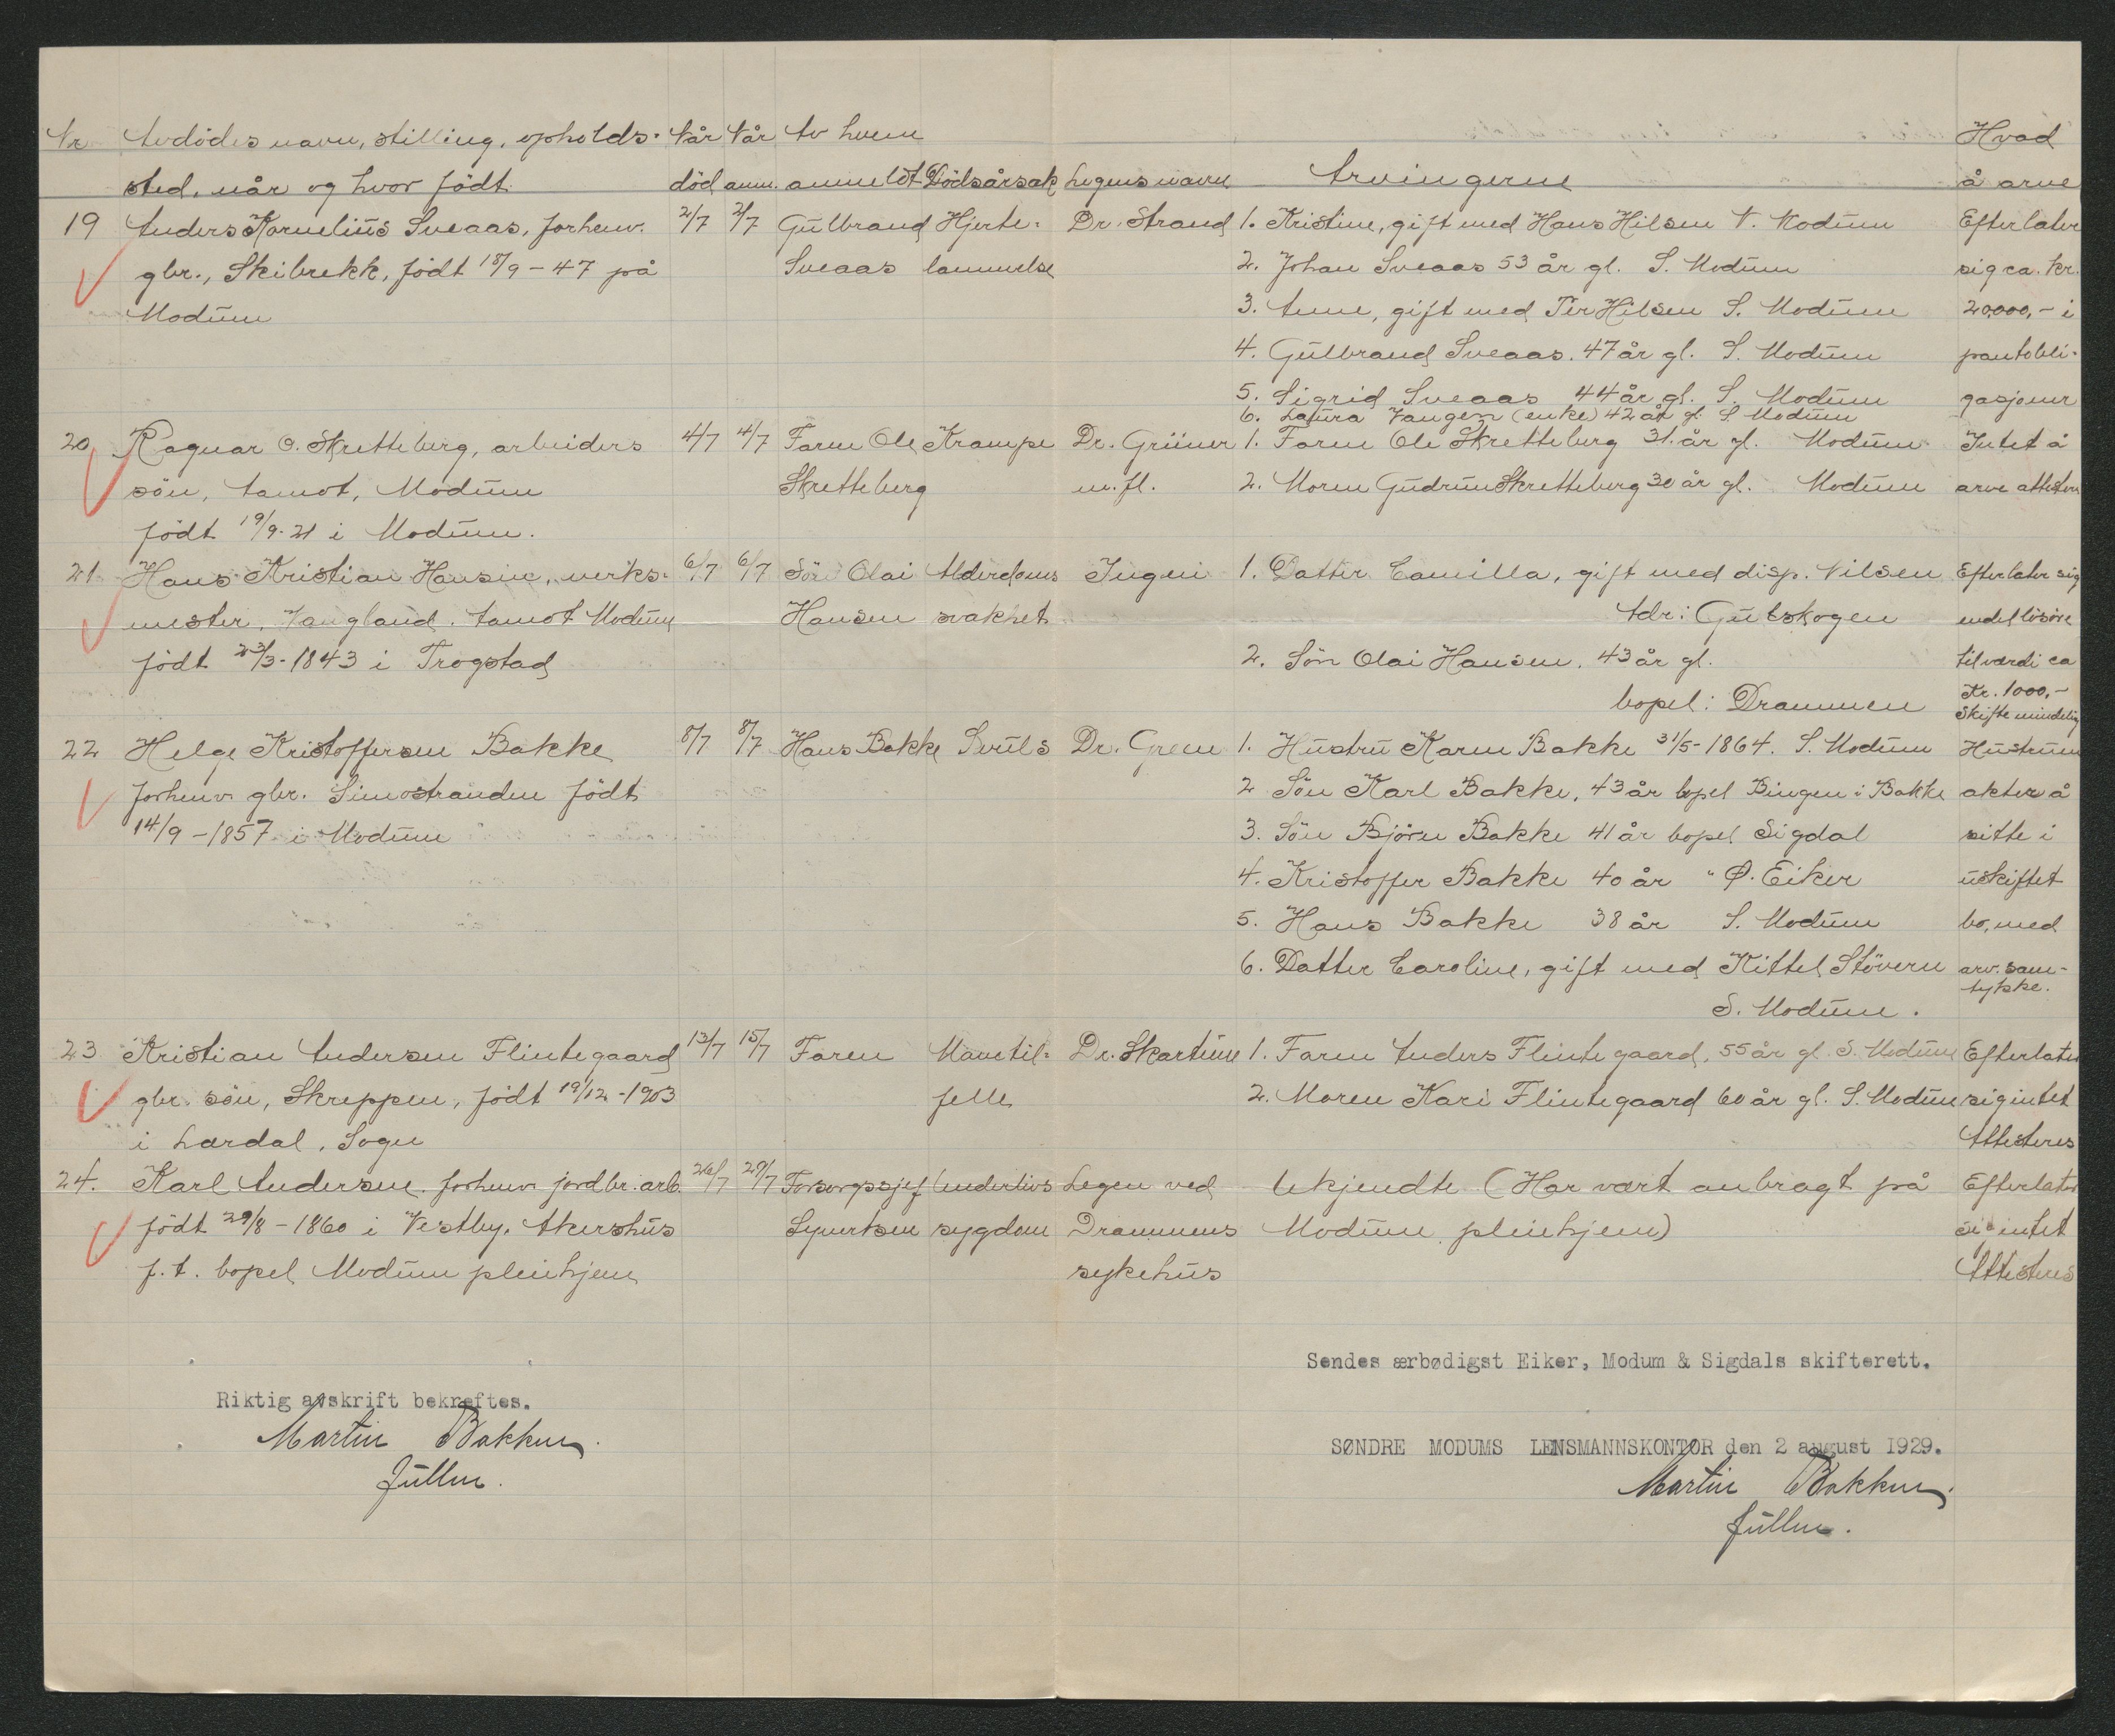 Nr Avdødes navn, stilling, opholds- Når Når Av hvem Hvad
sted, når og hvor født. død anm. anmeldt Dødsårsak Legens navn Arvingerne å arve
19 Anders Kornelius Sveaas, forhenv. 2/7 2/7 Gulbrand Hjerte- Dr. Strand 1. Kristine, gift med Hans Hilsen N. Modum Efterlater
gbr., Skibrekk, født 18/9-47 på Sveaas lammelse 2. Johan Sveaas 53 år gl. S. Modum sig ca. kr.
Modum 3. Anne, gift med Per Hilsen S. Modum 20,000,- i
4. Gulbrand Sveaas. 47 år gl. S. Modum pantobli-
5. Sigrid Sveaas 44 år gl. S. Modum gasjoner
6. Laura Vangen (enke) 42 år gl. S Modum
20 Ragnar O. Skretteberg, arbeiders 4/7 4/7 Faren Ole Krampe Dr. Grüner 1. Faren Ole Skretteberg 31. år gl. Modum Intet å
søn, Åamot, Modum Skretteberg m.fl. 2. Moren Gudrun Skretteberg 30 år gl. Modum arve attesteres
født 19/9-21 i Modum.
21 Hans Kristian Hansen, verks- 6/7 6/7 Søn Olai Alderdoms Ingen 1. Datter Camilla, gift med disp. Nilsen Efterlater sig
mester, Vangland. Åamot Modum Hansen svakhet Adr: Gulskogen endel løsøre
født 23/3-1843 i Trøgstad 2. Søn Olai Hansen. 43 år gl. til værdi ca
bopel: Drammen Kr. 1000,-
Skifte mindelig
22 Helge Kristoffersen Bakke 8/7 8/7 Hans Bakke Svuls Dr. Green 1. Hustru Karen Bakke 31/5-1864. S. Modum Hustruen
forhenv. gbr. Simostranden født 2 Søn Karl Bakke, 43 år bopel Bingen i Bakke akter å
14/9-1857 i Modum 3. Søn Bjørn Bakke 41 år bopel Sigdal sitte i
4. Kristoffer Bakke 40 år " Ø. Eiker uskiftet
5. Hans Bakke 38 år S. Modum bo, med
6. Datter Caroline, gift med Kittel Støvern arv. sam-
tykke.
S. Modum.
23 Kristian Andersen Flintegaard 13/7 15/7 Faren Vanvtil- Dr. Skartum 1. Faren Anders Flintegaard, 55 år gl. S. Modum Efterlater
gbr. søn, Skreppen, født 19/12-1903 felle 2. Moren Kari Flintegaard 60 år gl. S. Modum sig intet
i Lærdal, Sogn Attesteres
24. Karl Andersen. forhenv. jordbr. arb. 26/7 29/7 Forsorgssjef Underlivs Legen ved Ukjendte (Har vært anbragt på Efterlater
født 29/8-1860 i Vestby. Akershus Syvertsen sygdom Drammens Modum pleiehjem) sig intet
f. t. bopel Modum pleiehjem sykehus Attesteres
Sendes ærbødigst Eiker, Modum & Sigdals skifterett.
Riktig avskrift bekreftes.
Martin Bakken.
fullm.
SØNDRE MODUMS LENSMANNSKONTOR den 2 august 1929.
Martin Bakken.
fullm.